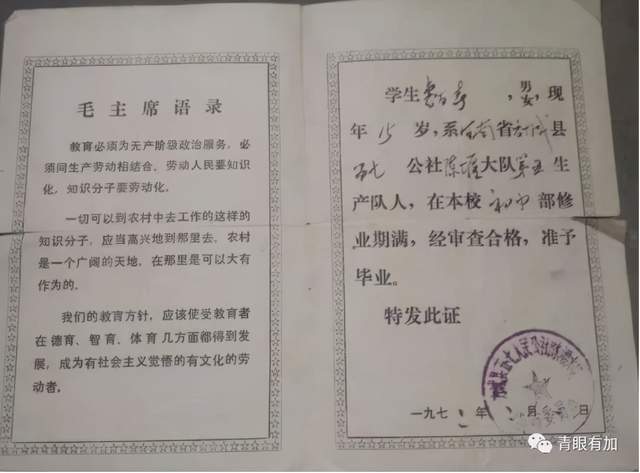 毛主席语录
教育必须为无产阶级政治服务，必
须同生产劳动相结合。劳动人民要知识
化，知识分子要劳动化。
一切可以到农村中去工作的这样的
知识分子，应当高兴地到那里去。农村
是一个广阔的天地，在那里是可以大有
作为的。
我们的教育方针，应该使受教育者
在德育、智育、体育几方面都得到发
展，成为有社会主义觉悟的有文化的劳
动者。
学生 ，男女，现
年15岁，系河南省方城县
五七公社陈 大队第五生
产队人，在本校初中部修
业期满，经审查合格，准予
毕业。
特发此证
方城县五七人民公社
一九七 年 月 日
青眼有加